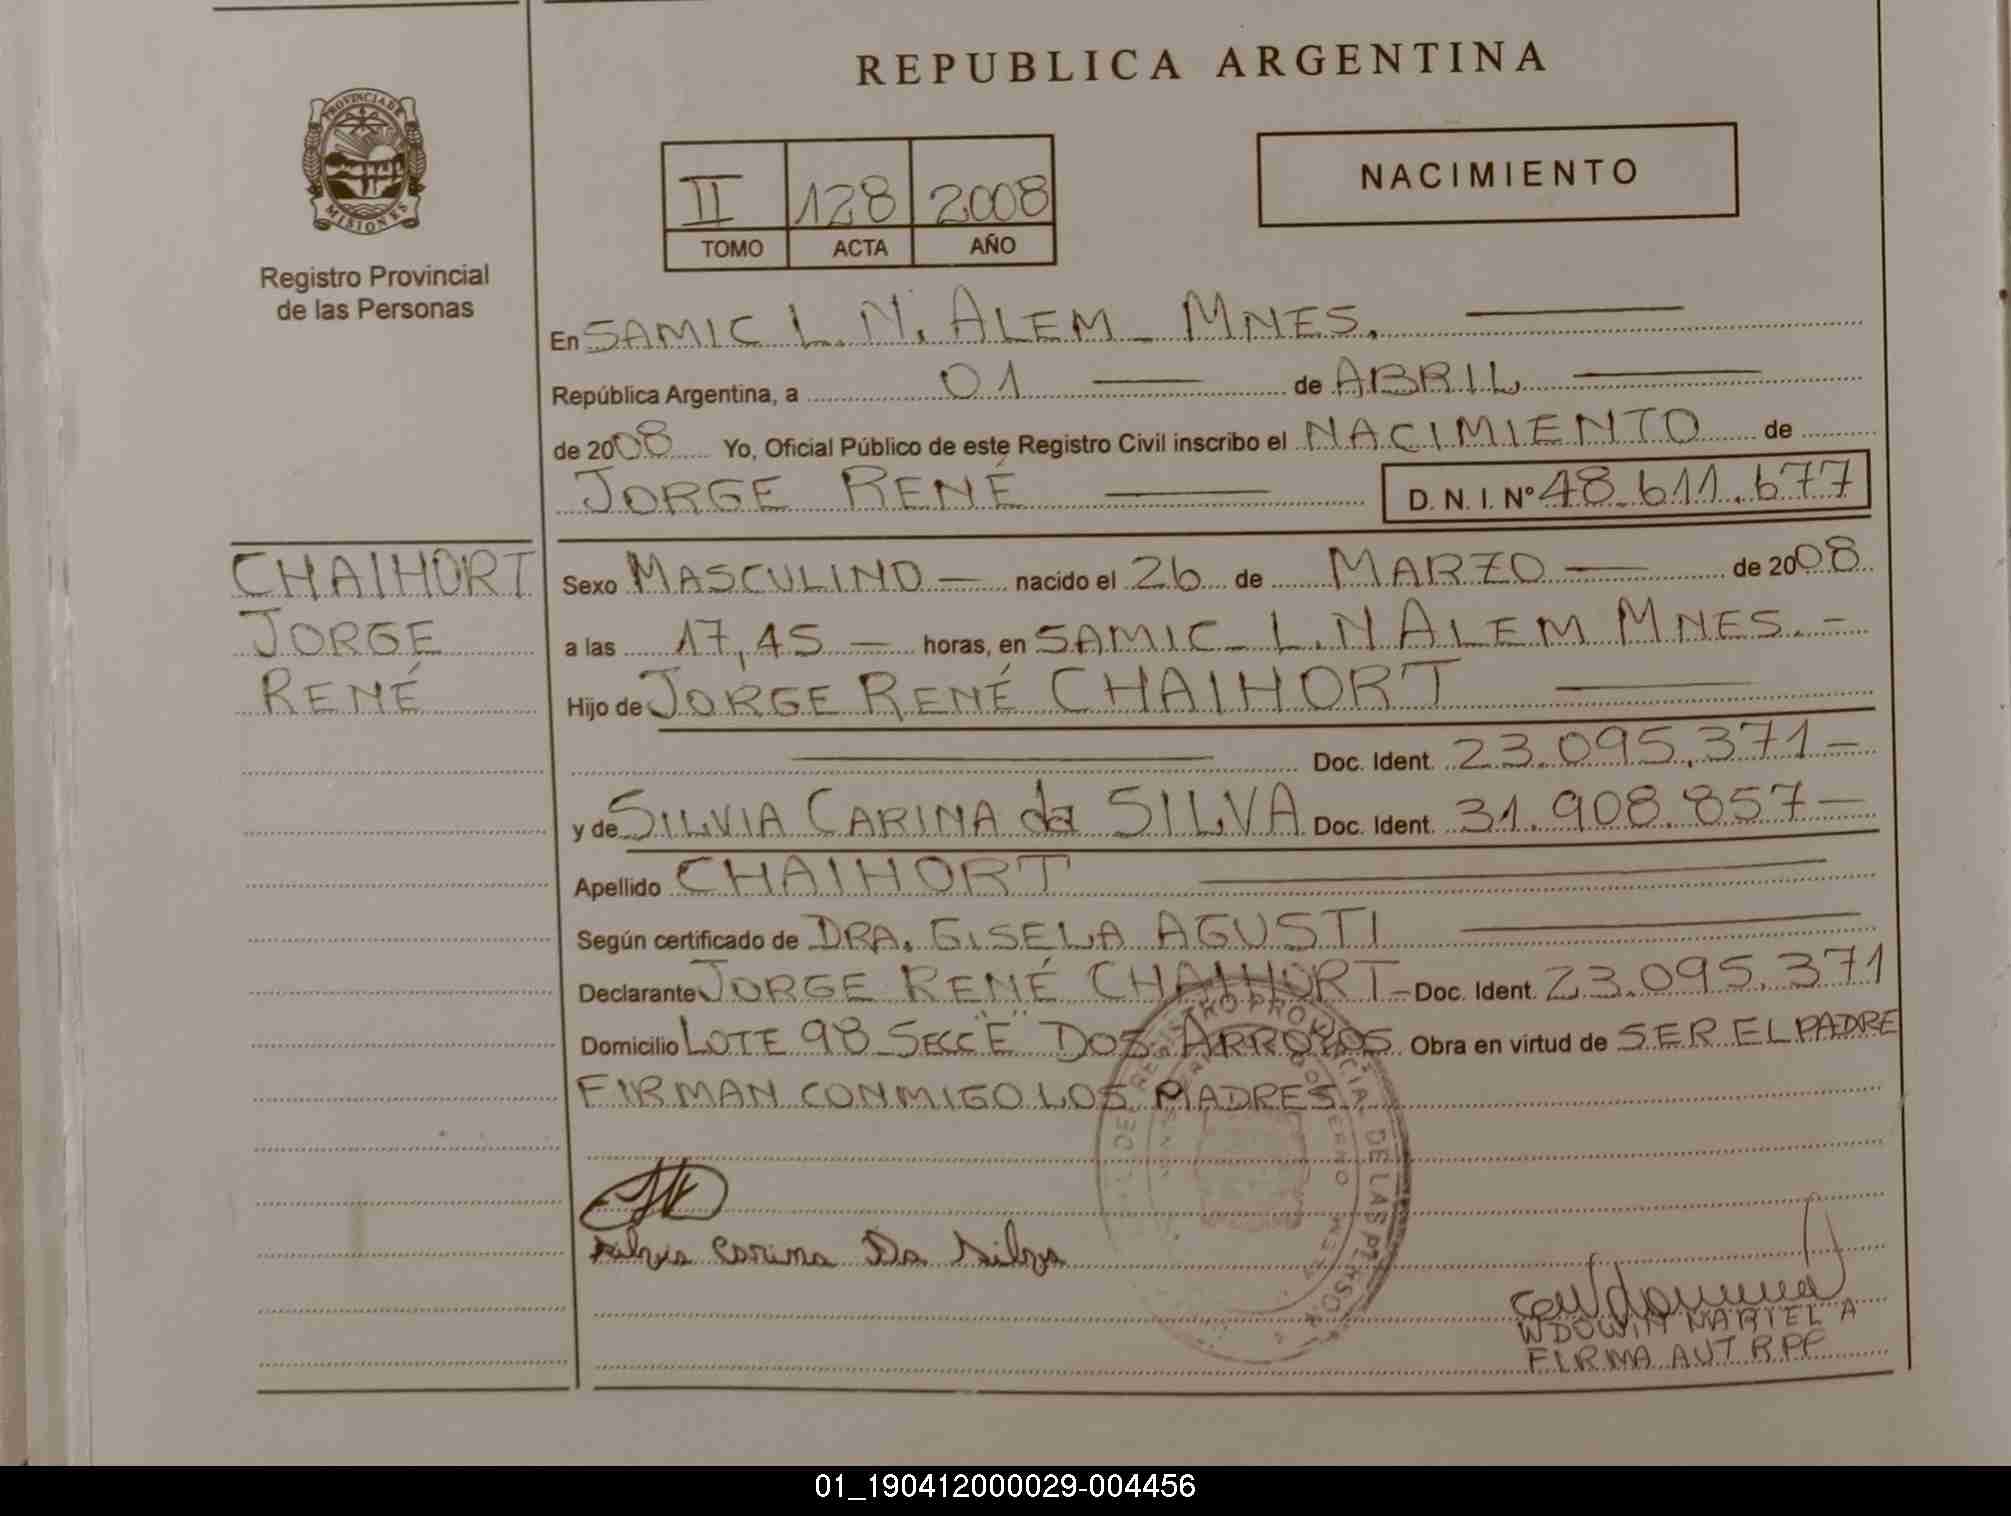 REPUBLICA ARGENTINA
PROVINCIA DE MISIONES
Registro Provincial
de las Personas
II 128 2008
TOMO ACTA AÑO
NACIMIENTO
En SAMIC L.N. ALEM - MNES.
República Argentina, a 01 de ABRIL
de 2008 Yo, Oficial Público de este Registro Civil inscribo el NACIMIENTO de
JORGE RENÉ D. N. I. Nº 48.611.677
CHAIHORT
JORGE
RENÉ
Sexo MASCULINO - nacido el 26 de MARZO - de 2008
a las 17,45 - horas, en SAMIC - L.N ALEM MNES. -
Hijo de JORGE RENÉ CHAIHORT
Doc. Ident. 23.095.371 -
y de SILVIA CARINA da SILVA Doc. Ident. 31.908.857 -
Apellido CHAIHORT
Según certificado de DRA. GISELA AGUSTI
Declarante JORGE RENÉ CHAIHORT - Doc. Ident. 23.095.371
Domicilio LOTE 98 - SECC "E" DOS ARROYOS Obra en virtud de SER EL PADRE
FIRMAN CONMIGO LOS PADRES
REGISTRO PROVINCIAL DE LAS PERSONAS
Silvia Carina Da Silva
WDOWIN MARIEL A
FIRMA AUT RPP
01_190412000029-004456